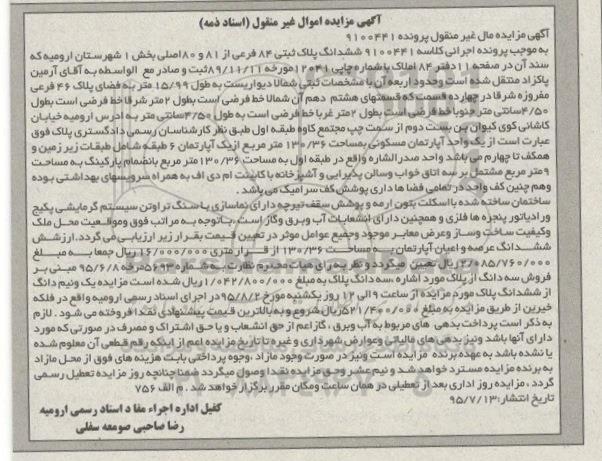 آگهی مزایده اموال غیر منقول (اسناد ذمه)
آگهی مزایده مال غیر منقول پرونده ۹۱۰۰۴۴۱
به موجب پرونده اجرائی کلاسه ۹۱۰۰۴۴۱ ششدانگ پلاک ثبتی ۸۴ فرعی از ۸۱ و ۸۰اصلی بخش ۱ شهرستان ارومیه که
سند آن در صفحه ۱۱ دفتر ۸۴ املاک با شماره چاپی ۱۲۰۴۱ مورخه ۸۹/۱۱/۱۱ ثبت و صادر مع الواسطه به آقای آرمین
پاکزاد منتقل شده است وحدود اربعه آن با مشخصات ثبتی شمالا دیواریست به طول ۱۵/۹۹ متر به فضای پلاک ۴۶ فرعی
مفروزه شرقا در چهارده قسمت که قسمتهای هشتم دهم آن شمالا خط فرضی است بطول ۲متر شرقا خط فرضی است بطول
۴/۵۰سانتی متر جنوبا خط فرضی است بطول ۲متر غربا خط فرضی است به طول ۴/۵۰سانتی متر به آدرس ارومیه خیابان
کاشانی کوی کیوان بن بست دوم از سمت چپ مجتمع کاوه طبقه اول طبق نظر کارشناسان رسمی دادگستری پلاک فوق
عبارت است از یک واحد آپارتمان مسکونی بمساحت ۱۳۰/۳۶ متر مربع ازیک آپارتمان ۶ طبقه شامل طبقات زیر زمین و
همکف تا چهارم می باشد واحد صدر الشاره واقع در طبقه اول به مساحت ۱۳۰/۳۶متر مربع بانضمام پارکینگ به مساحت
۹متر مربع مشتمل بر سه اتاق خواب وسالن پذیرایی و آشپزخانه با کابینت ام دی اف به همراه سرویسهای بهداشتی بوده
وهم چنین کف واحد در تمامی فضا ها داری پوشش کف سرامیک می باشد .
ساختمان ساخته شده با اسکلت بتون ارمه و پوشش سقف تیرچه دارای نماسازی با سنگ تراوتن سیستم گرمایشی پکیج
ورادیاتور پنجره ها فلزی و همچنین دارای انشعابات آب وبرق وگاز است .باتوجه به مراتب فوق وموقعیت محل ملک
وکیفیت ساخت وساز وعرض معابر موجود وجمیع عوامل موثر در تعیین قیمت بقرار زیر ارزیابی می گردد.ارزشش
ششدانگ عرصه و اعیان آپارتمان به مساحت ۱۳۰/۳۶ از قرار متری ۱۶/۰۰۰/۰۰۰ریال جمعا به مبلغ
۲/۰۸۵/۷۶۰/۰۰۰ریال تعیین میگردد و نظر به رای هیات محترم نظارت به شماره ۵۶۹۳مرخه ۹۵/۶/۸ مبنی بر
فروش سه دانگ از پلاک مورد اشاره ،سه دانگ پلاک به مبلغ ۱/۰۴۲/۸۰۰/۰۰۰ریال شده است مزایده یک ونیم دانگ
از ششدانگ پلاک مورد مزایده از ساعت ۹ الی ۱۲ روز یکشنبه مورخ ۹۵/۸/۲ در اجرای اسناد رسمی ارومیه واقع در فلکه
خیرین از طریق مزایده به مبلغ ۵۲۱/۴۰۰/۰۰۰ریال شروع و به بالاترین قیمت پیشنهادی نقدا فروخته می شود . لازم
به ذکر است پرداخت بدهی های مربوط به آب وبرق ، گاز اعم از حق انشعاب و یا حق اشتراک و مصرف در صورتی که مورد
دارای آنها باشد ونیز بدهی های مالیاتی وعوارض شهرداری و غیره تا تاریخ مزایده اعم از اینکه رقم قطعی آن معلوم شده
یا نشده باشد به عهده برنده مزایده است ونیز در صورت وجود مازاد ،وجوه پرداختی بابت هزینه های فوق از محل مازاد
به برنده مزایده مسترد خواهد شد و نیم عشر وحق مزایده نقدا وصول میگردد ضمنا چنانچه روز مزایده تعطیل رسمی
گردد ، مزایده روز اداری بعد از تعطیلی در همان ساعت ومکان مقرر برگزار خواهد شد . م الف ۷۵۶
تاریخ انتشار:۹۵/۷/۱۳
کفیل اداره اجراء مفا د اسناد رسمی ارومیه
رضا صاحبی صومعه سفلی